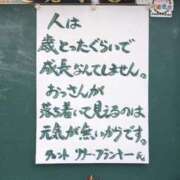 人は
歳とったぐらいで
成長なんてしません。
おっさんが
落ち着いて見えるのは
元気が無いからです。
タレント リリー・フランキー